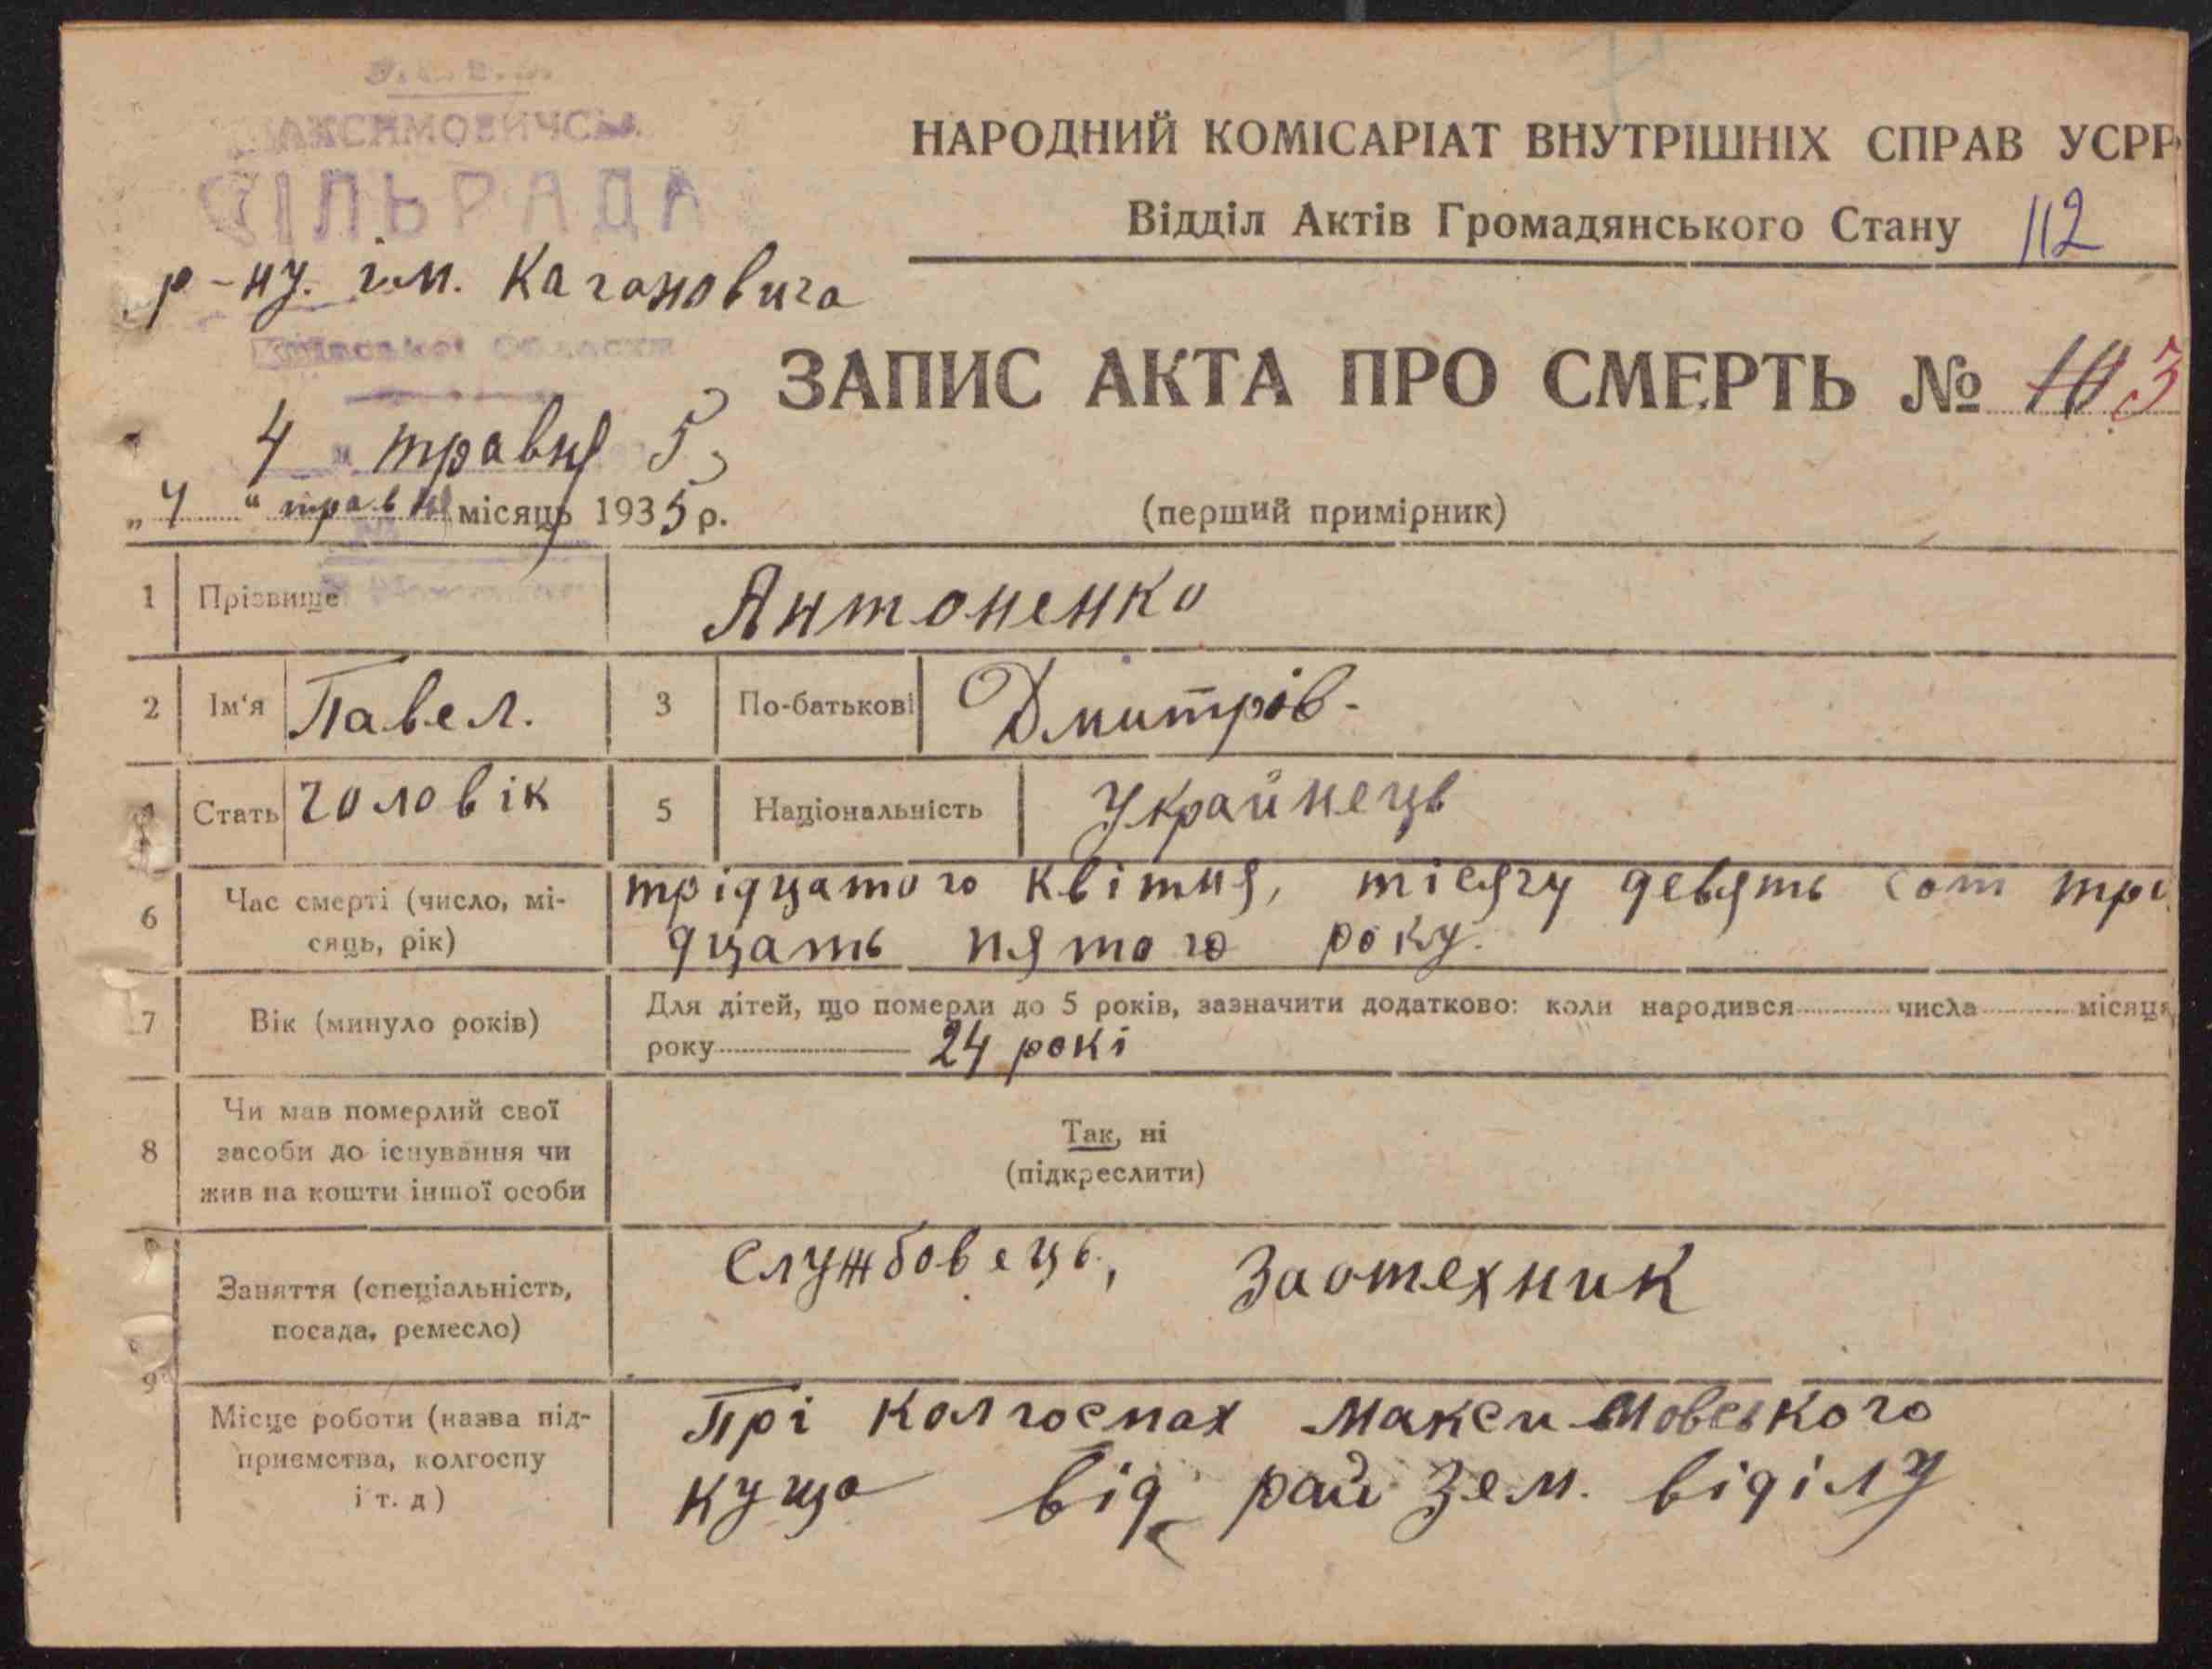 МАКСИМОВИЧСЬК
СІЛЬРАДА
р-ну. ім. Кагановича
Київської Области
4 травня 5
НАРОДНИЙ КОМІСАРІАТ ВНУТРІШНІХ СПРАВ УСРР
Відділ Актів Громадянського Стану 112
ЗАПИС АКТА ПРО СМЕРТЬ № 3
„4“ травня місяць 1935 р.
(перший примірник)
1 Прізвище Антоненко
2 Ім'я Павел. 3 По-батькові Дмитрів-
4 Стать чоловік 5 Національність Українець
6 Час смерті (число, мі-
сяць, рік)
трідцатого квітня, тісячу девять сот трі
дцать пятого року.
7 Вік (минуло років)
Для дітей, що померли до 5 років, зазначити додатково: коли народився числа місяця
року 24 рокі
8 Чи мав померлий свої
засоби до існування чи
жив на кошти іншої особи
Так, ні
(підкреслити)
9
Заняття (спеціальність,
посада, ремесло)
Службовець, Заотехник
Місце роботи (назва під-
приємства, колгоспу
і т. д)
Прі колгоспах Максимовського
куща від рай зем. віділу